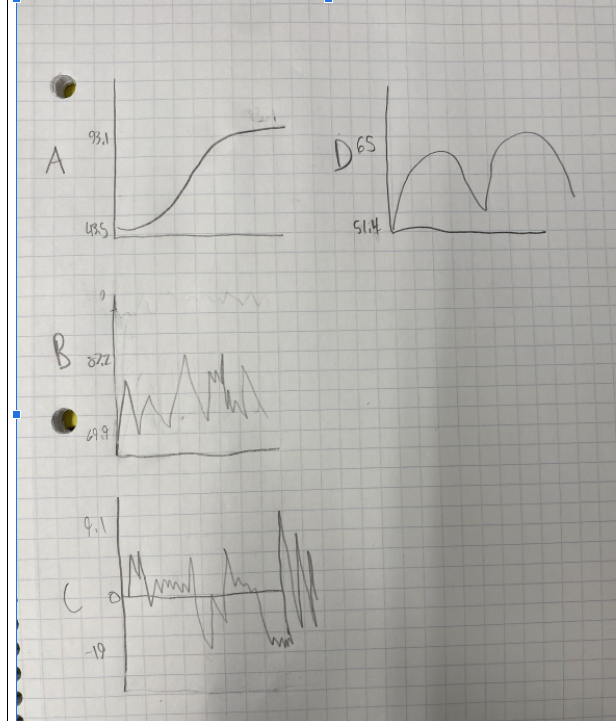 A
93.1
43.5
D
65
51.4
B
87.2
69.9
C
9.1
0
-19